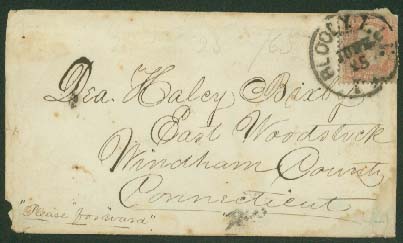 Dea. Haley Bixby
East Woodstock
Windham County
Connecticut
"Please forward"